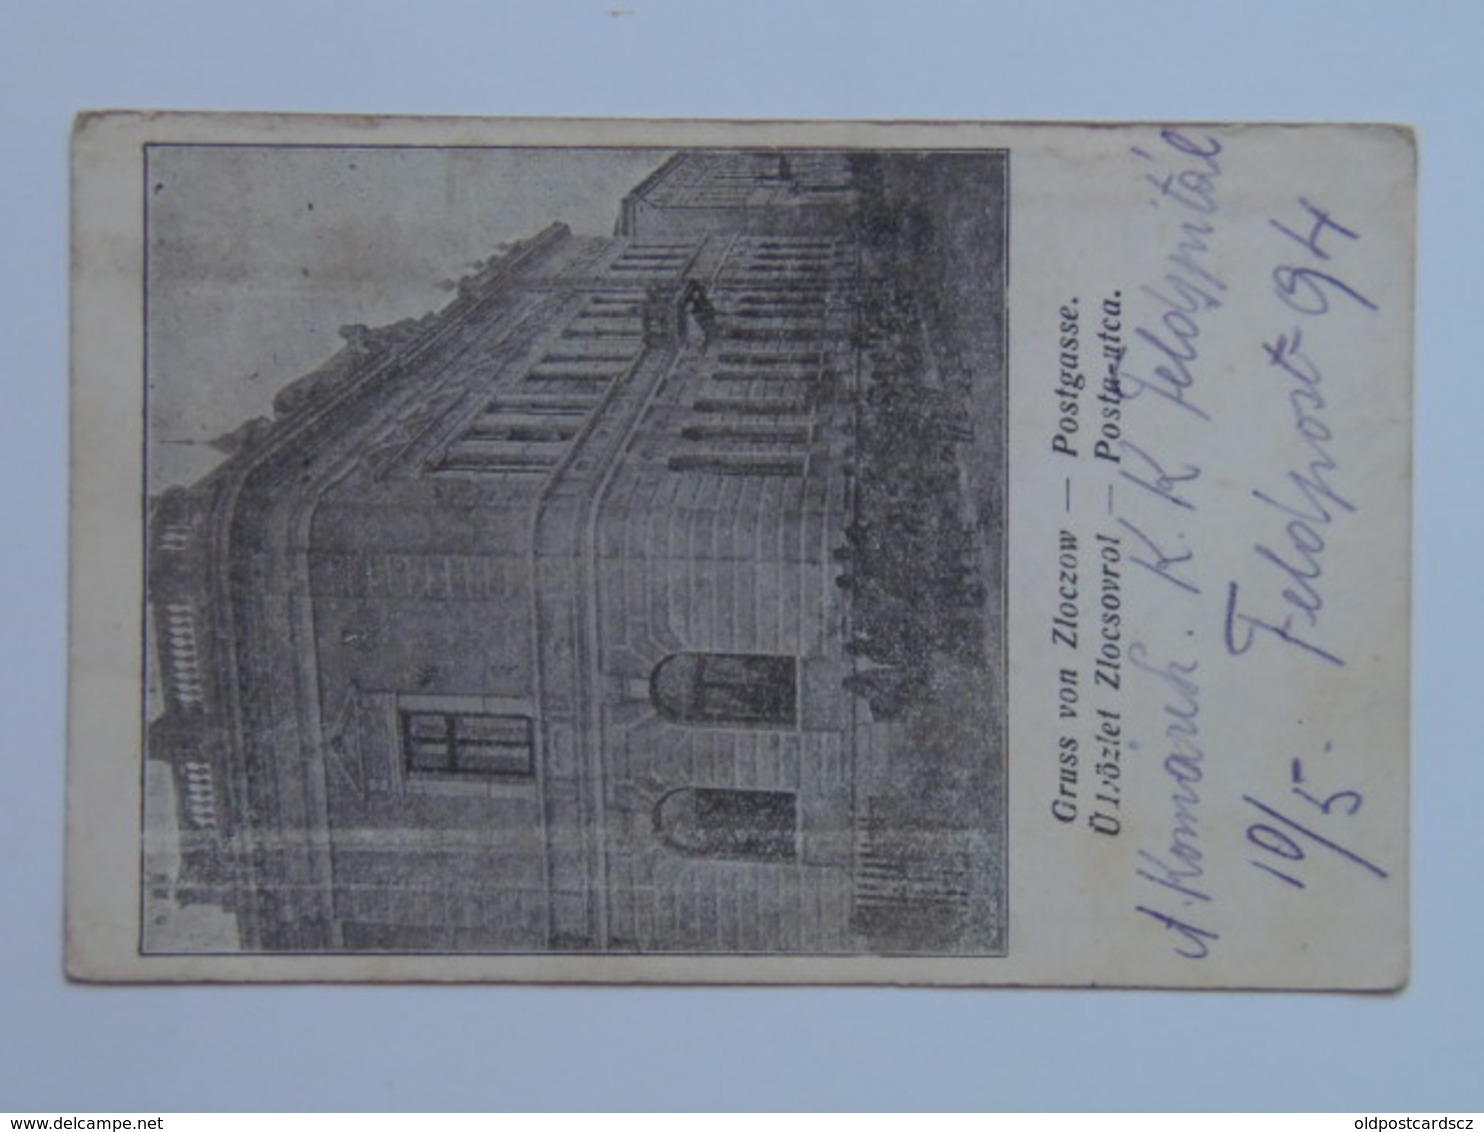 Gruss von Zloczow — Postgasse.
Üdvözlet Zlocsovrol — Posta-utca.
A. Komárek. K. K Feldspitál
10/5. Feldpost=94
www.delcampe.net
oldpostcardscz